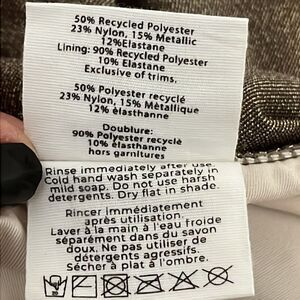 50% Recycled Polyester
23% Nylon, 15% Metallic
12%Elastane
Lining: 90% Recycled Polyester
10% Elastane
Exclusive of trims.
50% Polyester recyclé
23% Nylon, 15% Métallique
12% élasthanne
Doublure:
90% Polyester recyclè
10% élasthanne
hors garnitures
Rinse immediately after use.
Cold hand wash separately in
mild soap. Do not use harsh
detergents. Dry flat in shade.
Rincer immédiatement
après utilisation.
Laver à la main à l'eau froide
séparément dans du savon
doux. Ne pas utiliser de
détergents agressifs.
Sécher à plat à l'ombre.